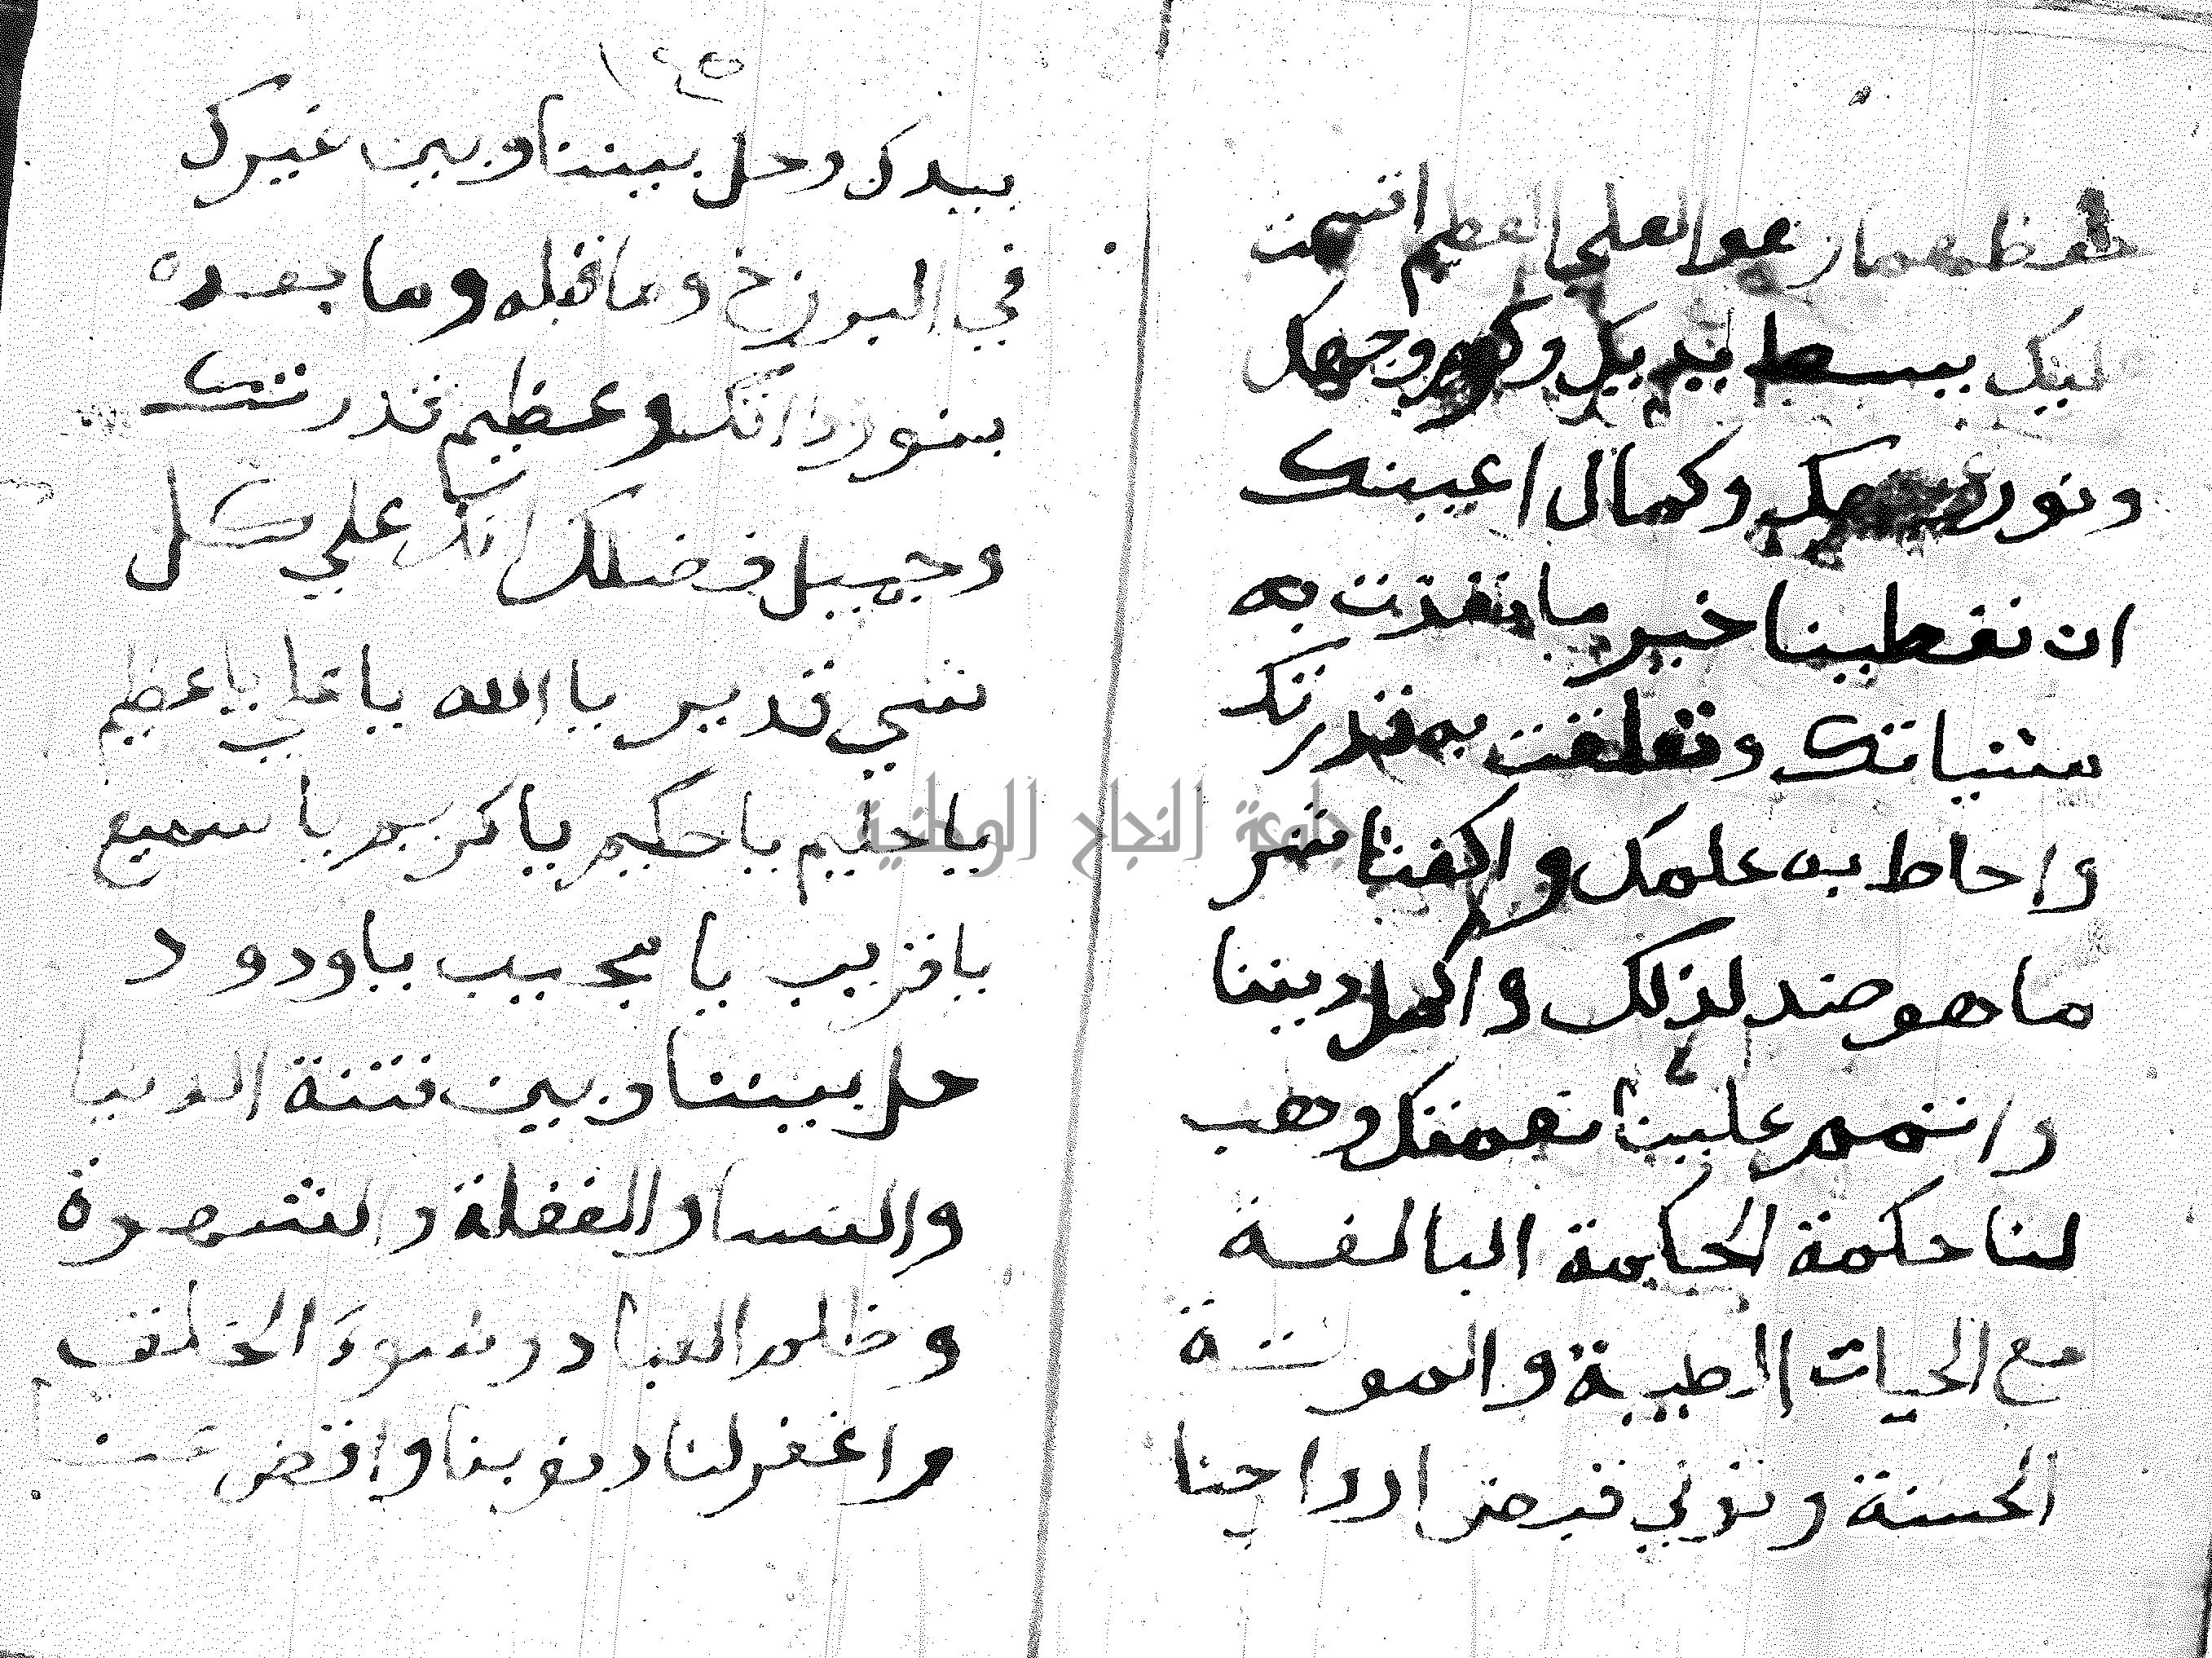 حفظهما وهو العلي العظيم اقسمت
عليك ببسط يديك وكرم وجهك
ونور وكمال اعينك
ان تعطينا خير ما نفذت به
مشياتك وتعلقت به قدرتك
واحاط به علمك واكفنا شر
ما هو ضد لذلك واكمل ديننا
واتمم علينا نعمتك وهب
لنا حكمة الحكمة البالغة
مع الحيات الطيبة والموتة
الحسنة وتولي قبض ارواحنا
١٤٥
بيدك وحل بيننا وبين غيرك
في البرزخ وما قبله وما بعده
بنور ذاتك وعظيم قدرتك
وجميل فضلك انك علي كل
شي قدير يا الله يا علي يا عظيم
يا حليم يا حكيم يا كريم يا سميع
يا قريب يا مجيب يا ودود
حل بيننا وبين فتنة الدنيا
والنسا والغفلة والشهوة
وظلم العباد وسوء الخلق
واغفر لنا ذنوبنا واقض عنا
جامعة النجاح الوطنية